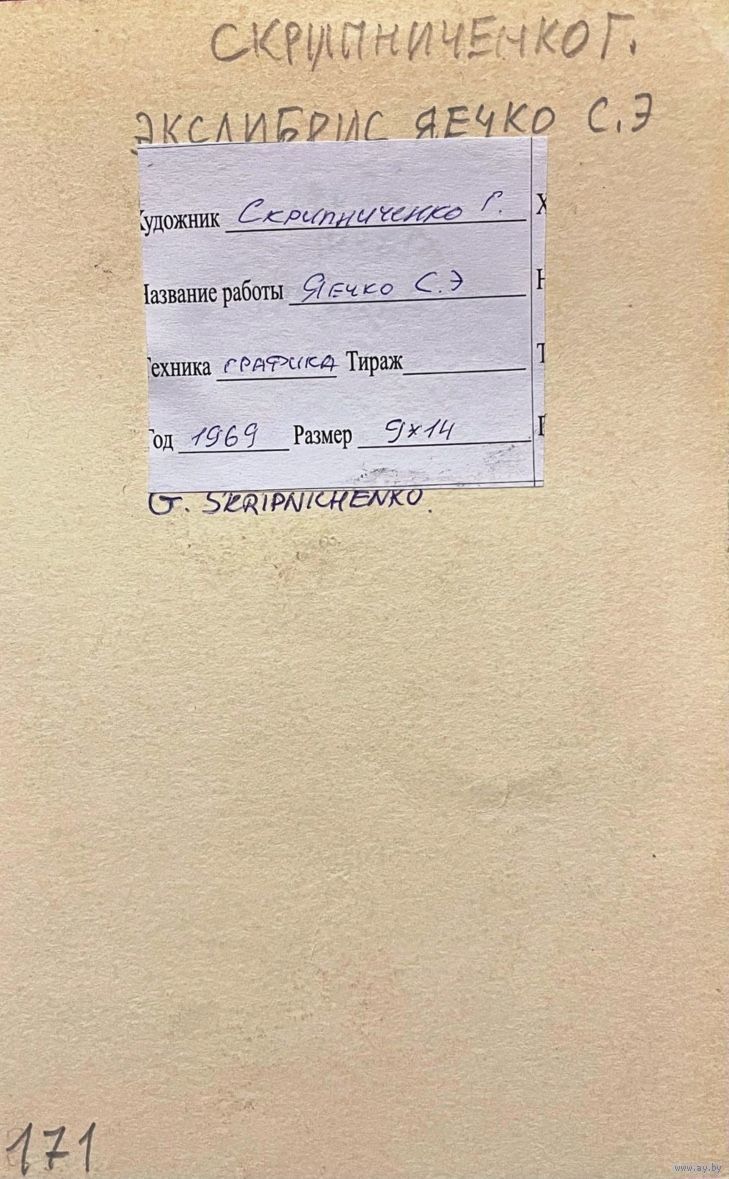 СКРИПНИЧЕНКО Г.
ЭКСЛИБРИС ЯЕЧКО С.Э
Художник Скрипниченко Г. Х
Название работы Яечко С.Э Н
Техника графика Тираж Т
Год 1969 Размер 9x14 Г
G. SKRIPNICHENKO.
171
www.ay.by